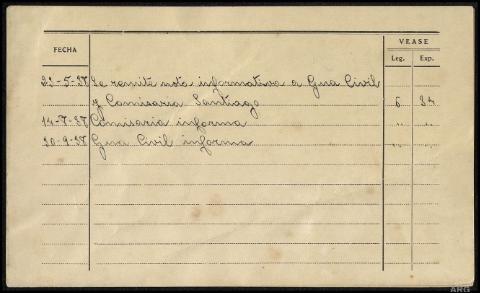 FECHA VEASE
Leg. Exp.
21-5-57 Se remite nota informativa a Gua Civil
y Comisaria Santiago 6 84
14-7-57 Comisaria informa " "
30-9-57 Gua Civil informa " "
ARG